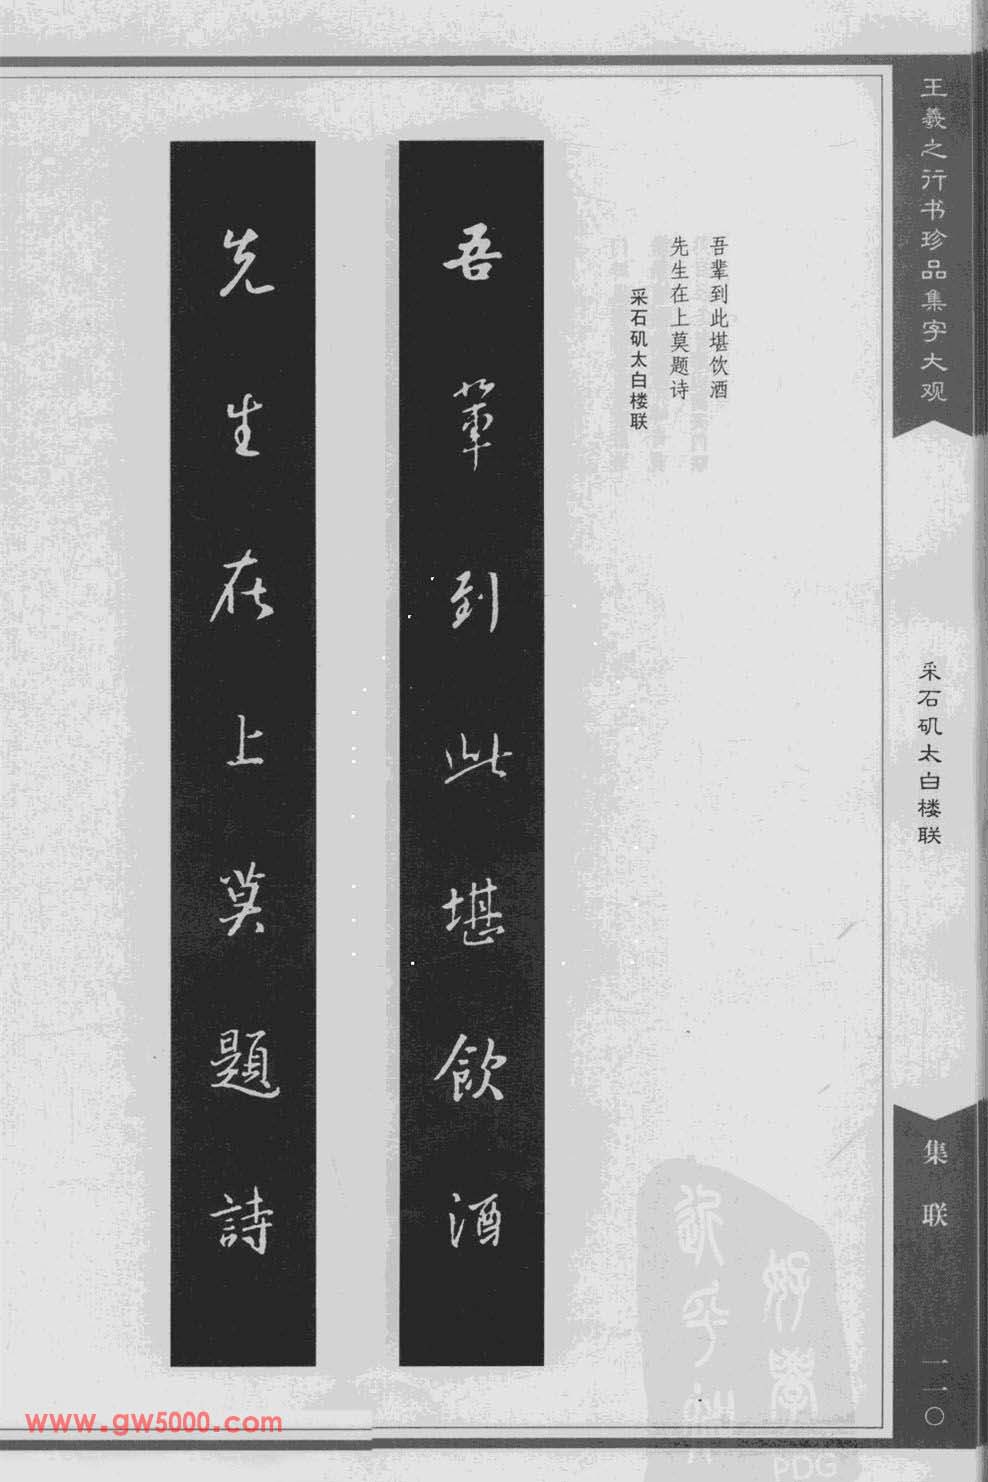 王羲之行书珍品集字大观
采石矶太白楼联
集联
一一〇
吾辈到此堪饮酒
先生在上莫题诗
采石矶太白楼联
吾輩到此堪飲酒
先生在上莫題詩
www.gw5000.com
PDG